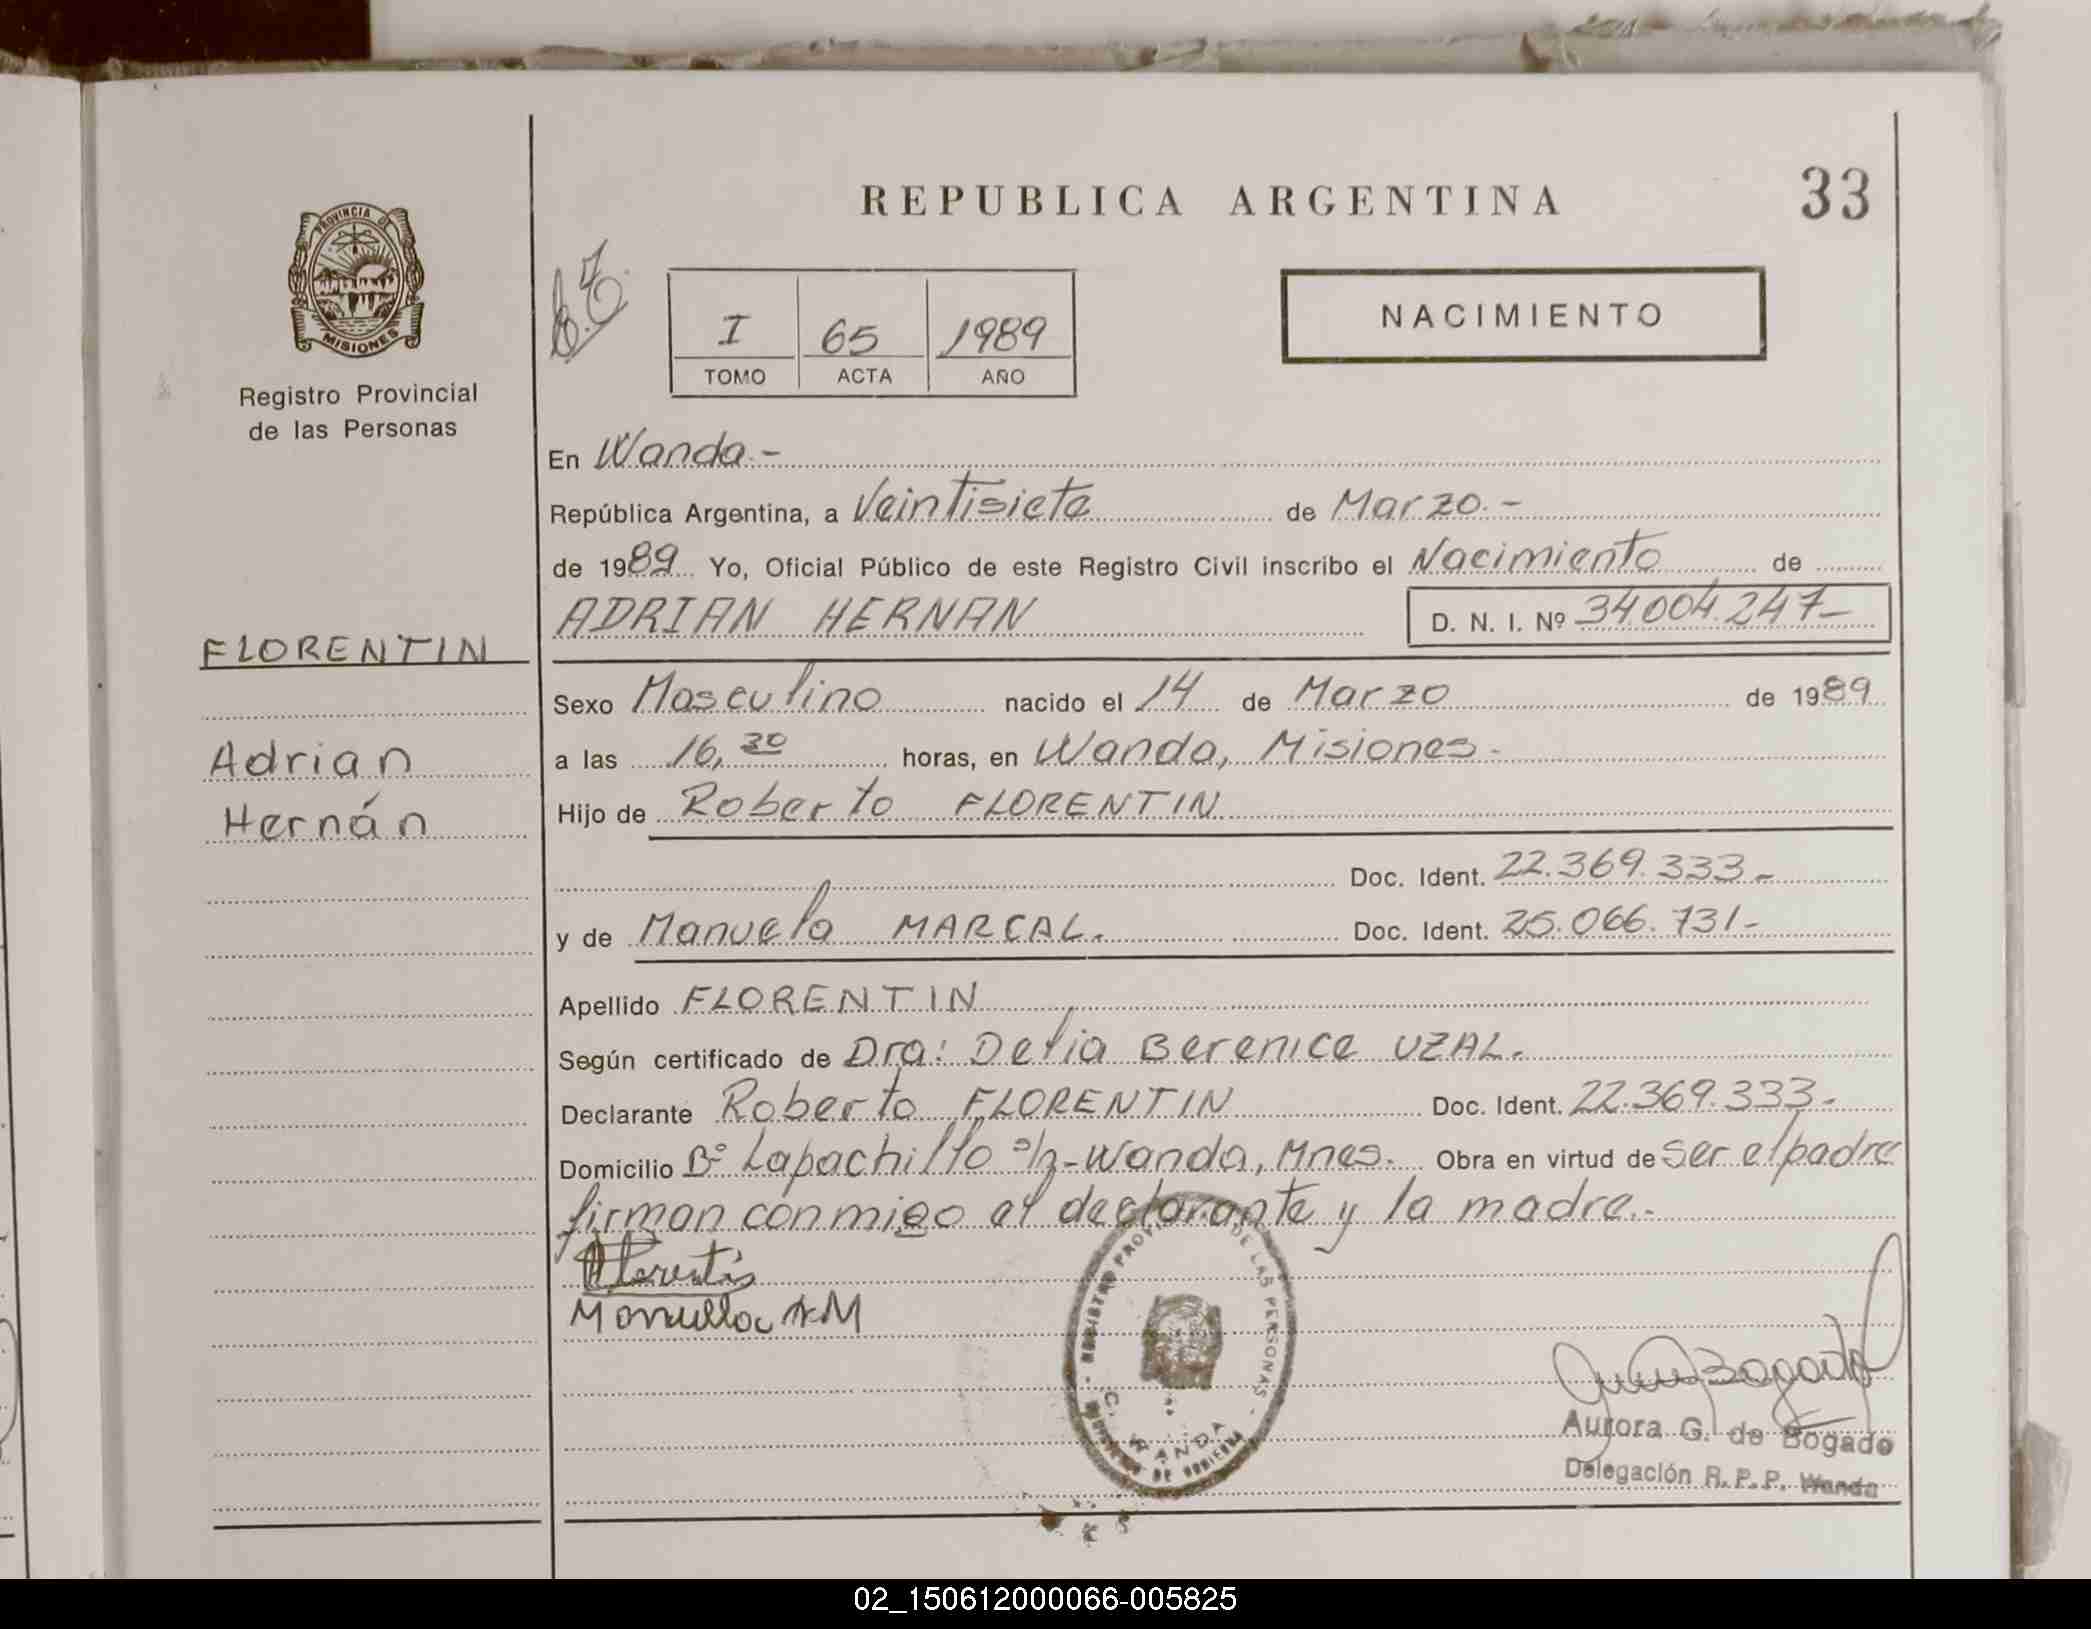 PROVINCIA DE
MISIONES
Registro Provincial
de las Personas
FLORENTIN
Adrian
Hernán
REPUBLICA ARGENTINA
33
I 65 1989
TOMO ACTA AÑO
NACIMIENTO
En Wanda.-
República Argentina, a Veintisiete de Marzo.-
de 1989 Yo, Oficial Público de este Registro Civil inscribo el Nacimiento de
ADRIAN HERNAN D. N. I. Nº 34.004.247-
Sexo Masculino nacido el 14 de Marzo de 1989
a las 16,30 horas, en Wanda, Misiones.-
Hijo de Roberto FLORENTIN
Doc. Ident. 22.369.333.-
y de Manuela MARCAL. Doc. Ident. 25.066.731-
Apellido FLORENTIN
Según certificado de Dra: Delia Berenice UZAL.
Declarante Roberto FLORENTIN Doc. Ident. 22.369.333.-
Domicilio Bº Lapachillo s/n-Wanda, Mnes. Obra en virtud de ser el padre
firman conmigo el declarante y la madre.-
REGISTRO PROVINCIAL DE LAS PERSONAS
WANDA
MINISTERIO DE GOBIERNO
Aurora G. de Bogado
Delegación R. P. P. Wanda
02_150612000066-005825